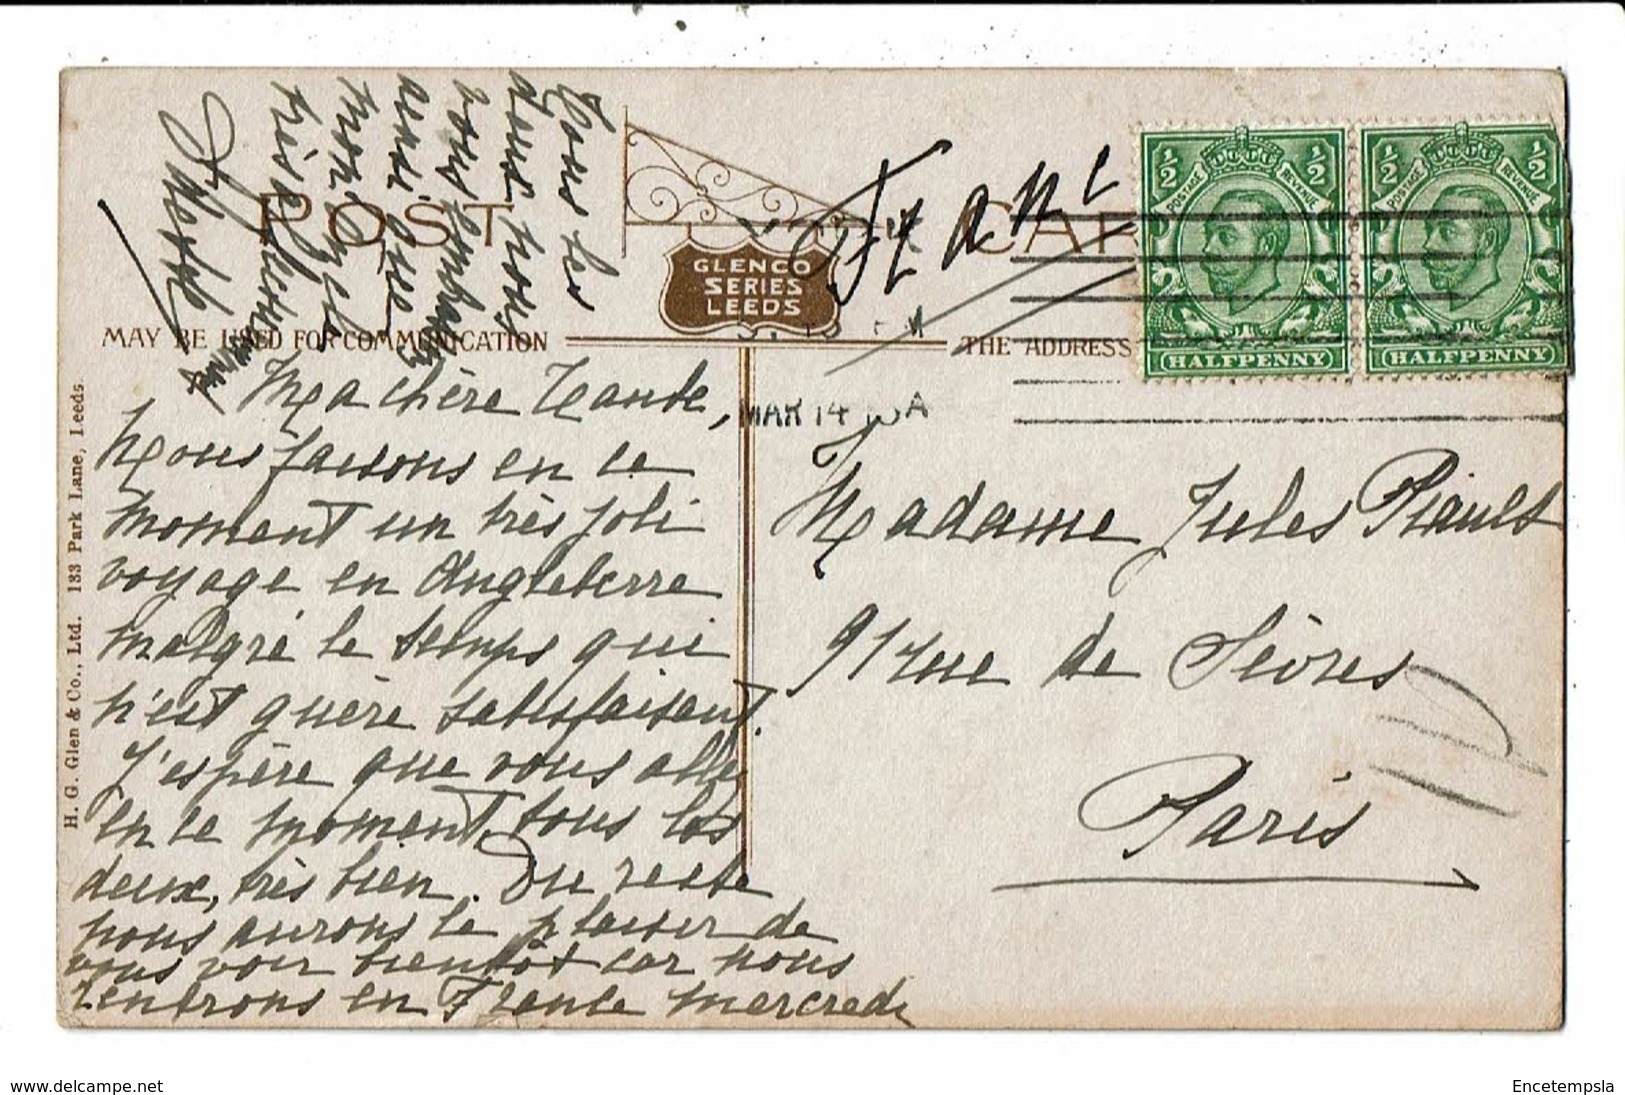 POST CAR
GLENCO
SERIES
LEEDS
MAY BE USED FOR COMMUNICATION
THE ADDRESS
H. G. Glen & Co., Ltd. 133 Park Lane, Leeds.
1/2 1/2
POSTAGE REVENUE
HALFPENNY
1/2 1/2
POSTAGE REVENUE
HALFPENNY
MAR 14
Ma chère
Nous faisons en ce
moment un très joli
voyage en Angleterre
malgré le temps qui
n'est guère satisfaisant.
J'espère que vous allez
en ce moment, tous les
deux, très bien. Du reste
nous aurons le plaisir de
vous voir bientôt car nous
rentrons en France mercredi
Tous les
deux nous
vous
ainsi que
mon
très
Madame Jules
91 rue de Sèvres
Paris
1D
www.delcampe.net
Encetempsla